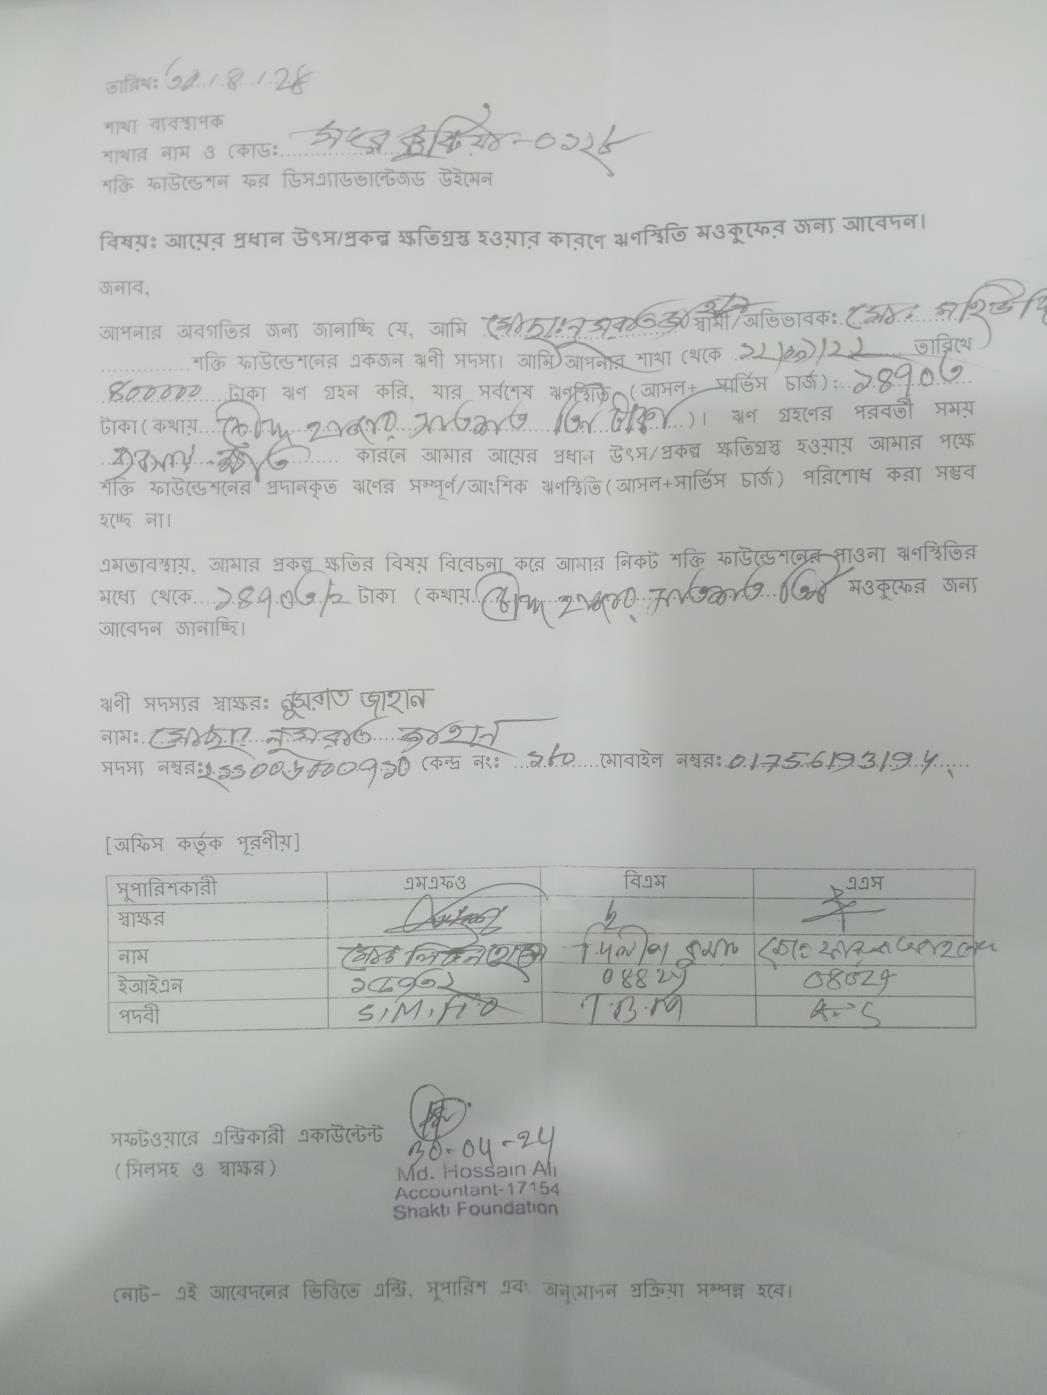 তারিখ: ৩০/৪/২৪
শাখা ব্যবস্থাপক
শাখার নাম ও কোড: সদর কুষ্টিয়া-০১২৮
শক্তি ফাউন্ডেশন ফর ডিসএ্যাডভান্টেজড উইমেন
বিষয়: আয়ের প্রধান উৎস/প্রকল্প ক্ষতিগ্রস্থ হওয়ার কারণে ঋণস্থিতি মওকুফের জন্য আবেদন।
জনাব,
আপনার অবগতির জন্য জানাচ্ছি যে, আমি মোছাঃ নুসরাত জাহান স্বামী/অভিভাবক: মোঃ
শক্তি ফাউন্ডেশনের একজন ঋণী সদস্য। আমি আপনার শাখা থেকে তারিখে
৪০০০০০ টাকা ঋণ গ্রহন করি, যার সর্বশেষ ঋণস্থিতি (আসল+ সার্ভিস চার্জ): ১৪৭০৩
টাকা (কথায় চৌদ্দ হাজার সাতশত তিন টাকা)। ঋণ গ্রহণের পরবর্তী সময়
কারনে আমার আয়ের প্রধান উৎস/প্রকল্প ক্ষতিগ্রস্থ হওয়ায় আমার পক্ষে
শক্তি ফাউন্ডেশনের প্রদানকৃত ঋণের সম্পূর্ণ/আংশিক ঋণস্থিতি(আসল+সার্ভিস চার্জ) পরিশোধ করা সম্ভব
হচ্ছে না।
এমতাবস্থায়, আমার প্রকল্প ক্ষতির বিষয় বিবেচনা করে আমার নিকট শক্তি ফাউন্ডেশনের পাওনা ঋণস্থিতির
মধ্যে থেকে ১৪৭০৩/= টাকা (কথায় চৌদ্দ হাজার সাতশত তিন মওকুফের জন্য
আবেদন জানাচ্ছি।
ঋণী সদস্যর স্বাক্ষর: নুসরাত জাহান
নাম: মোছাঃ নুসরাত জাহান
সদস্য নম্বর: কেন্দ্র নং: মোবাইল নম্বর:
[অফিস কর্তৃক পূরণীয়]
সুপারিশকারী এমএফও বিএম এএস
স্বাক্ষর
নাম দিলীপ কুমার মোঃ
ইআইএন
পদবী S.M.F.O T.B.M A.S
সফটওয়ারে এন্ট্রিকারী একাউন্টেন্ট
30-04-24
(সিলসহ ও স্বাক্ষর)
Md. Hossain Ali
Accountant-17154
Shakti Foundation
নোট- এই আবেদনের ভিত্তিতে এন্ট্রি, সুপারিশ এবং অনুমোদন প্রক্রিয়া সম্পন্ন হবে।